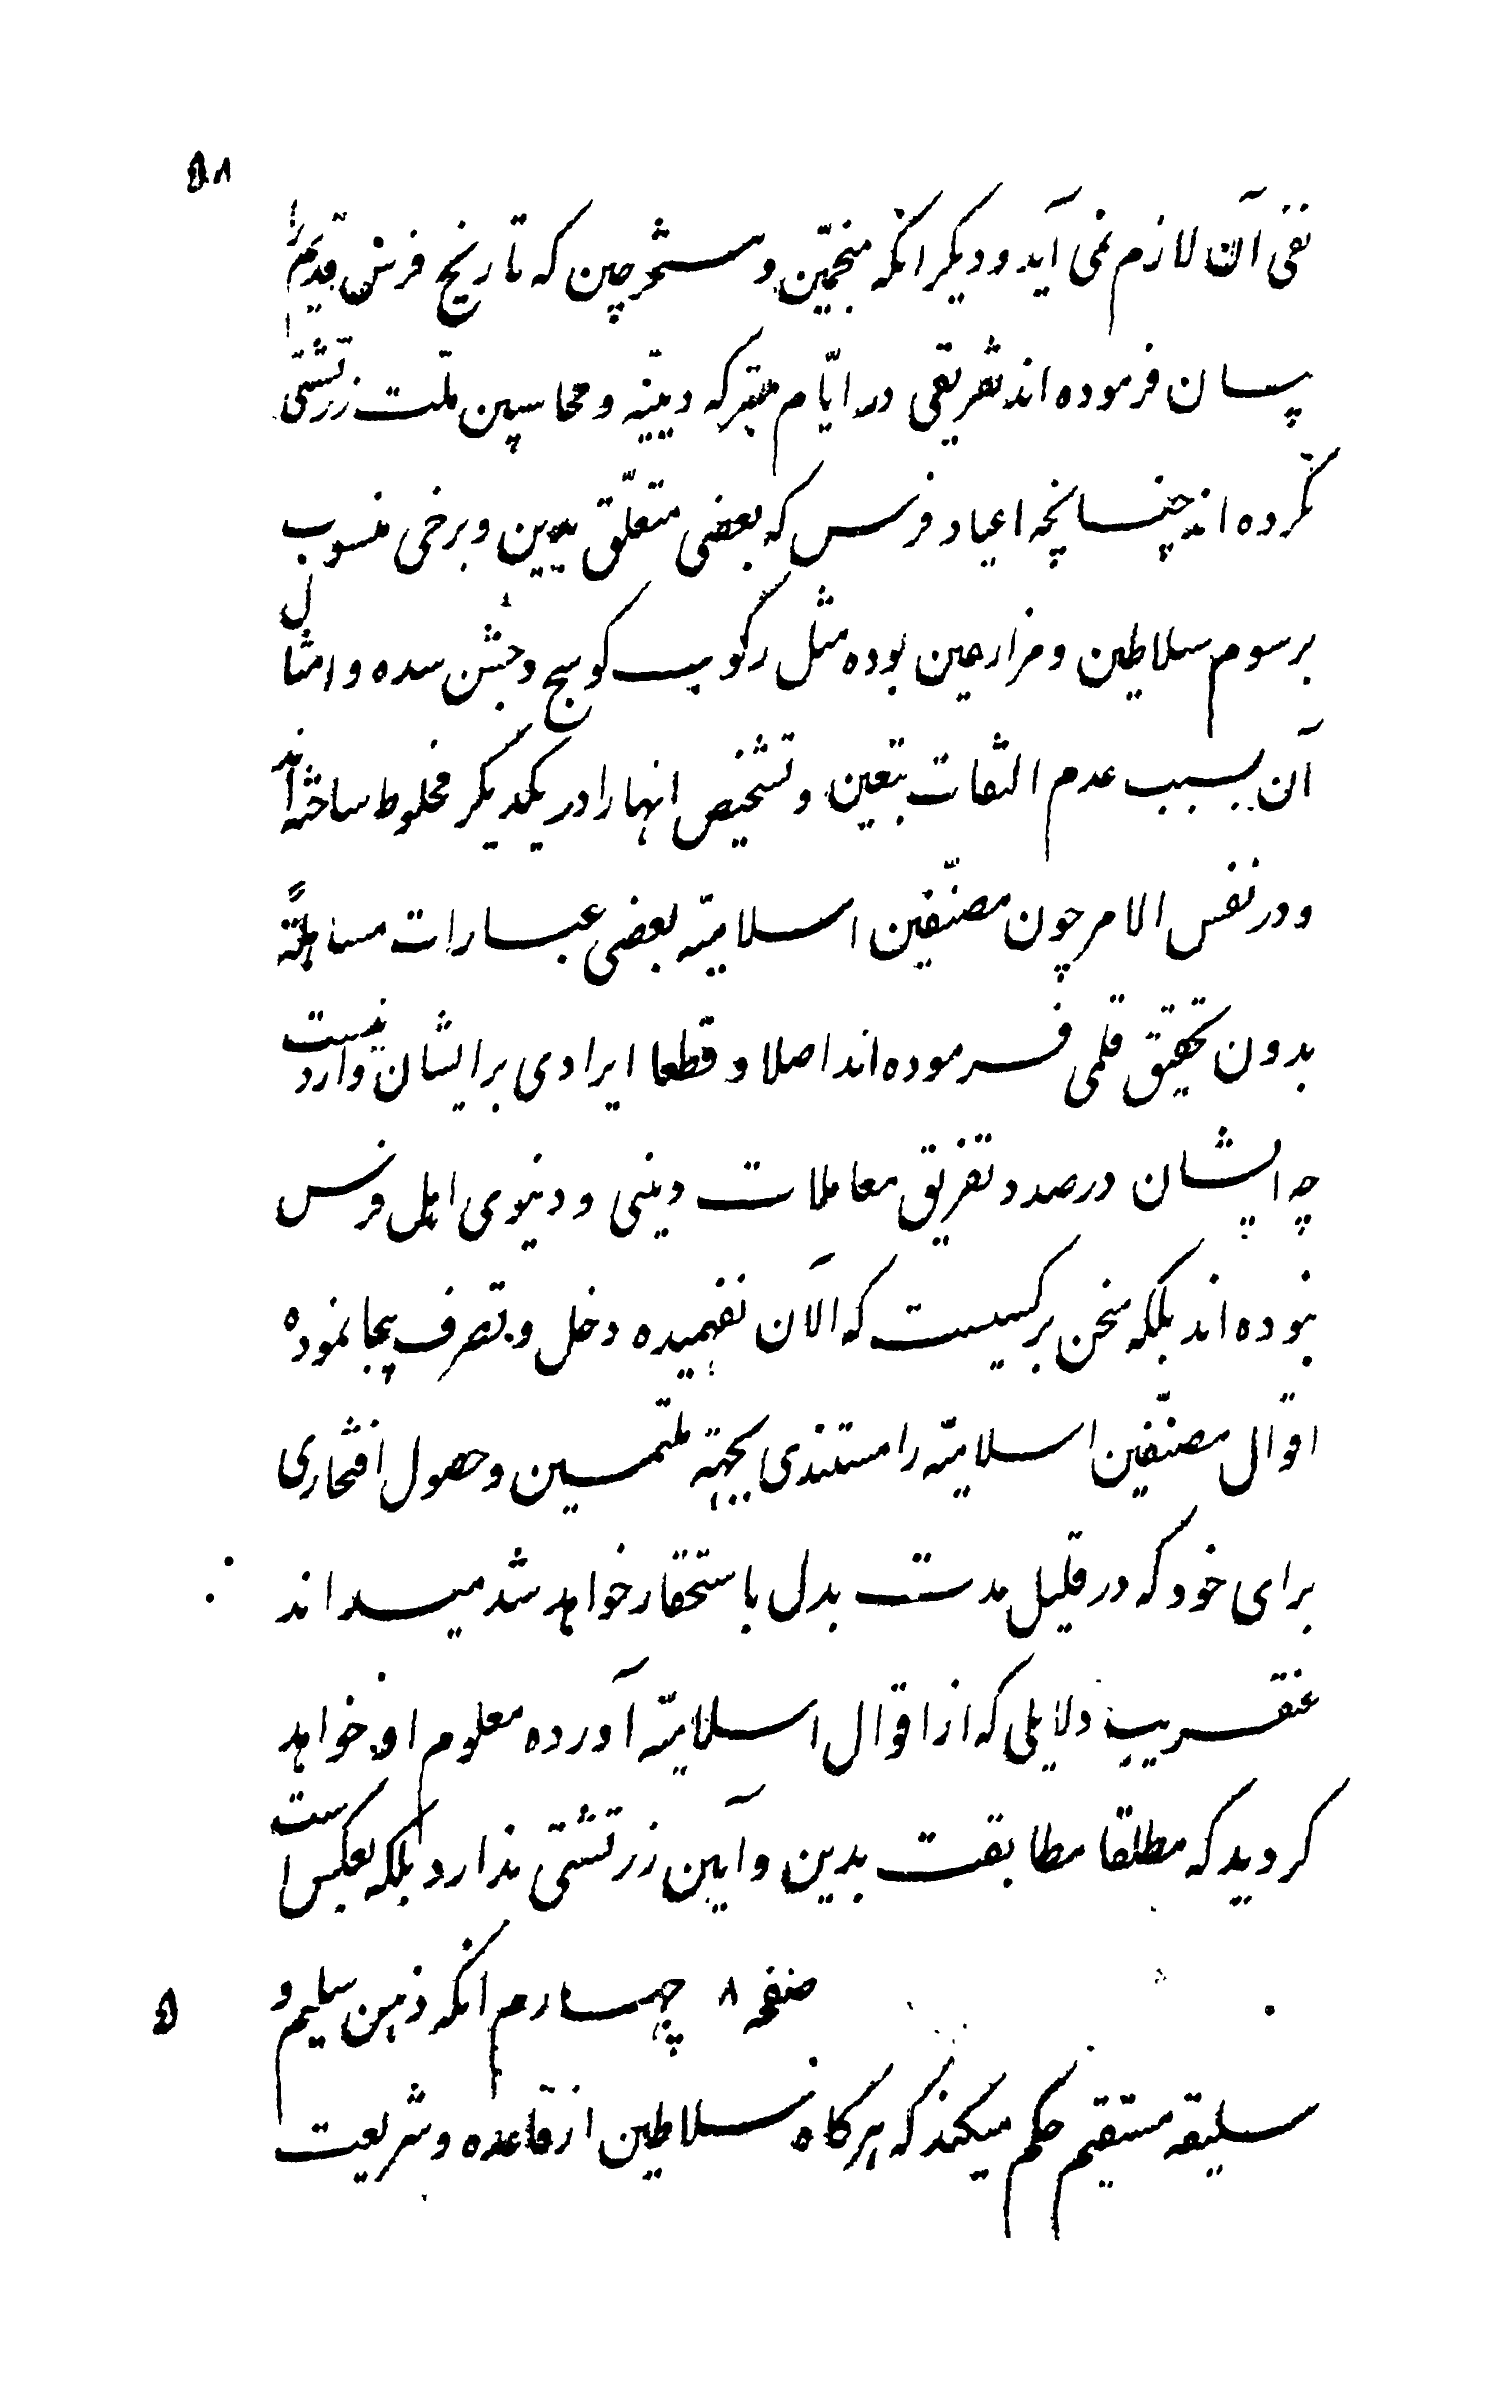 ۵۸
نفی آن لازم نمی آید و دیکر انکه منجمّین و مستخرجین که تاریخ فرس قدیم را
بیان فرموده اند تفریقی در ایّام متبرکه دینیه و محاسبین ملت زرتشتی
نکرده اند چنانچه اعیاد فرس که بعضی متعلّق بدین و برخی منسوب
برسوم سلاطین و مزارعین بوده مثل رکوب کوسج و جشن سده و امثال
آن بسبب عدم التفات بتعین و تشخیص انها را در یکدیکر مخلوط ساخته اند
و در نفس الامر چون مصنّفین اسلامیّه بعضی عبارات مساهلةً
بدون تحقیق قلمی فرموده اند اصلا و قطعا ایرادی برایشان وارد نیست
چه ایشان درصدد تفریق معاملات دینی و دنیوی اهل فرس
نبوده اند بلکه سخن بر کسیست که الآن نفهمیده دخل و تصرف بیجا نموده
اقوال مصنّفین اسلامیّه را مستندی بجهته ملتمسین و حصول افتخاری
برای خود که در قلیل مدت بدل باستحقار خواهد شد میداند
عنقریب دلایلی که از اقوال اسلامیّه آورده معلوم او خواهد
کردید که مطلقا مطابقت بدین و آیین زرتشتی ندارد بلکه بعکس است
صفحه ۸ چهارم انکه ذهن سلیم و
۵
سلیقه مستقیم حکم میکند که هرکاه سلاطین از قاعده و شریعت